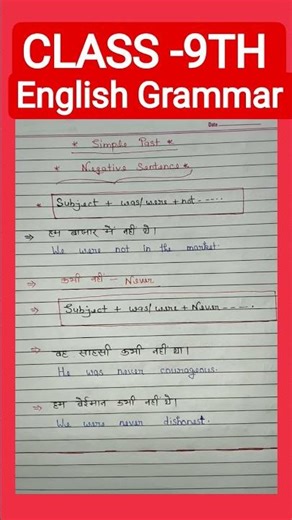 CLASS -9TH
English Grammar
Date
* Simple Past *
* Negative Sentence *
* Subject + was/were + not -----
⇒ हम बाजार में नहीं थे।
We were not in the market
⇒ कभी नहीं — Never
⇒ Subject + was/were + Never -----.
⇒ वह साहसी कभी नहीं था।
He was never courageous.
⇒ हम बेईमान कभी नहीं थे।
We were never dishonest.